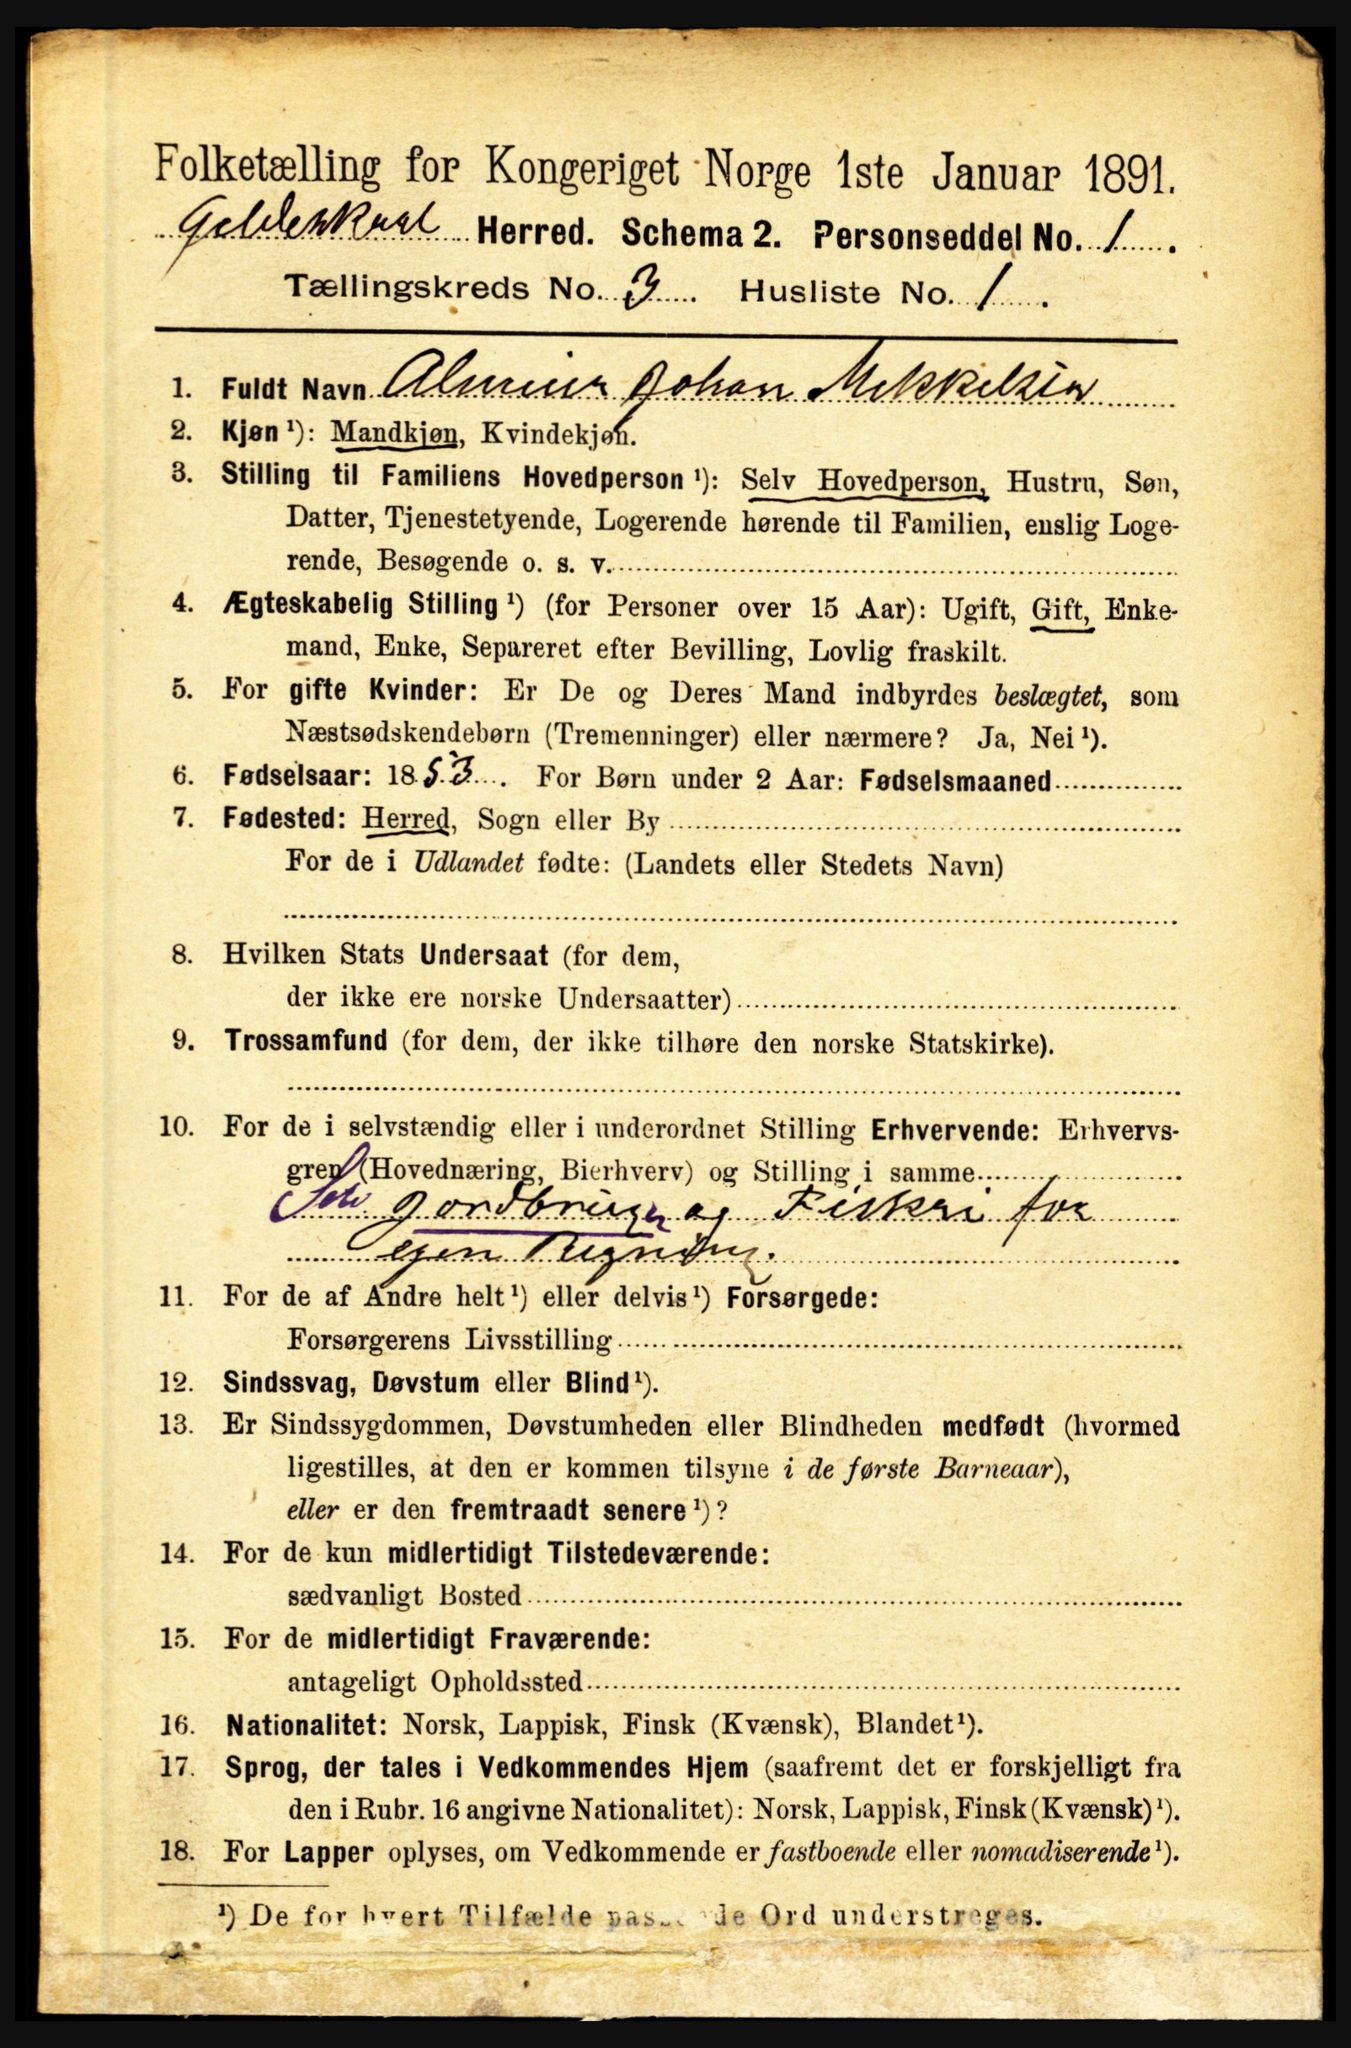 Folketælling for Kongeriget Norge 1ste Januar 1891.
Gildeskaal Herred. Schema 2. Personseddel No. 1.
Tællingskreds No. 3. Husliste No. 1.
1. Fuldt Navn Johan Mekkelsen
2. Kjøn¹): Mandkjøn, Kvindekjøn.
3. Stilling til Familiens Hovedperson¹): Selv Hovedperson, Hustru, Søn,
Datter, Tjenestetyende, Logerende hørende til Familien, enslig Loge-
rende, Besøgende o. s. v.
4. Ægteskabelig Stilling¹) (for Personer over 15 Aar): Ugift, Gift, Enke-
mand, Enke, Separeret efter Bevilling, Lovlig fraskilt.
5. For gifte Kvinder: Er De og Deres Mand indbyrdes beslægtet, som
Næstsødskendebørn (Tremenninger) eller nærmere? Ja, Nei¹).
6. Fødselsaar: 1853. For Børn under 2 Aar: Fødselsmaaned
7. Fødested: Herred, Sogn eller By
For de i Udlandet fødte: (Landets eller Stedets Navn)
8. Hvilken Stats Undersaat (for dem,
der ikke ere norske Undersaatter)
9. Trossamfund (for dem, der ikke tilhøre den norske Statskirke).
10. For de i selvstændig eller i underordnet Stilling Erhvervende: Erhvervs-
gren (Hovednæring, Bierhverv) og Stilling i samme
Selv Jordbruger og Fiskeri for
egen Regning.
11. For de af Andre helt¹) eller delvis¹) Forsørgede:
Forsørgerens Livsstilling
12. Sindssvag, Døvstum eller Blind¹).
13. Er Sindssygdommen, Døvstumheden eller Blindheden medfødt (hvormed
ligestilles, at den er kommen tilsyne i de første Barneaar),
eller er den fremtraadt senere¹)?
14. For de kun midlertidigt Tilstedeværende:
sædvanligt Bosted
15. For de midlertidigt Fraværende:
antageligt Opholdssted
16. Nationalitet: Norsk, Lappisk, Finsk (Kvænsk), Blandet¹).
17. Sprog, der tales i Vedkommendes Hjem (saafremt det er forskjelligt fra
den i Rubr. 16 angivne Nationalitet): Norsk, Lappisk, Finsk (Kvænsk)¹).
18. For Lapper oplyses, om Vedkommende er fastboende eller nomadiserende¹).
¹) De for hvert Tilfælde passende Ord understreges.